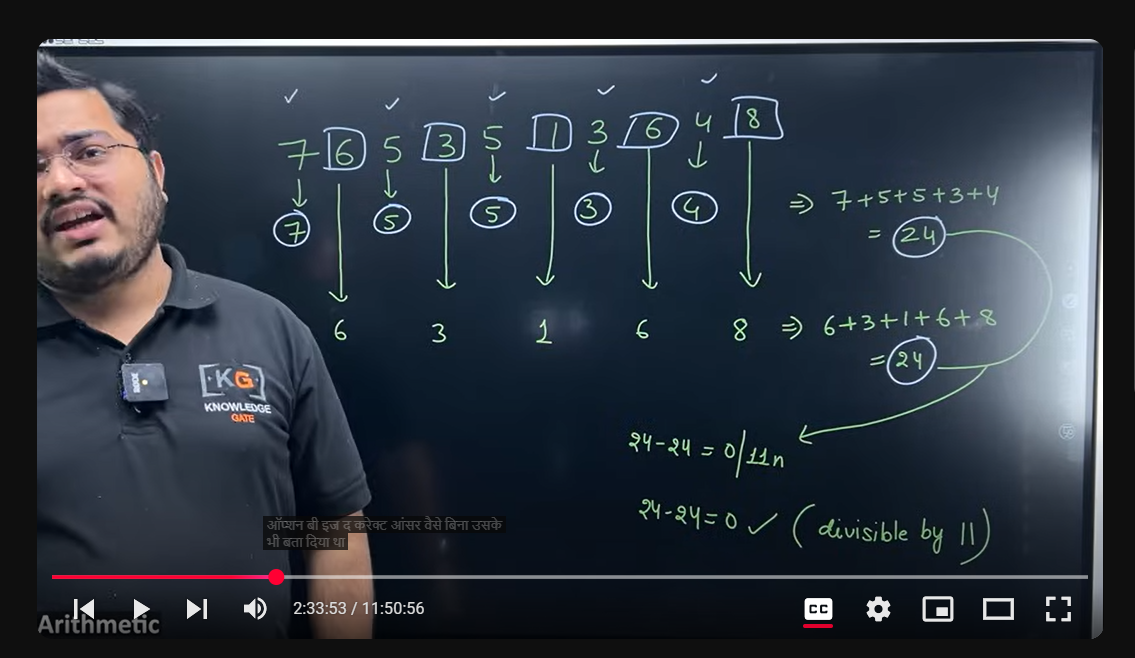 7 6 5 3 5 1 3 6 4 8
7 5 5 3 4
⇒ 7+5+5+3+4
= 24
6 3 1 6 8 ⇒ 6+3+1+6+8
= 24
24-24 = 0/11n
24-24=0 ✓ (divisible by 11)
KG
KNOWLEDGE
GATE
ऑप्शन बी इज द करेक्ट आंसर वैसे बिना उसके
भी बता दिया था
2:33:53 / 11:50:56
CC
Arithmetic